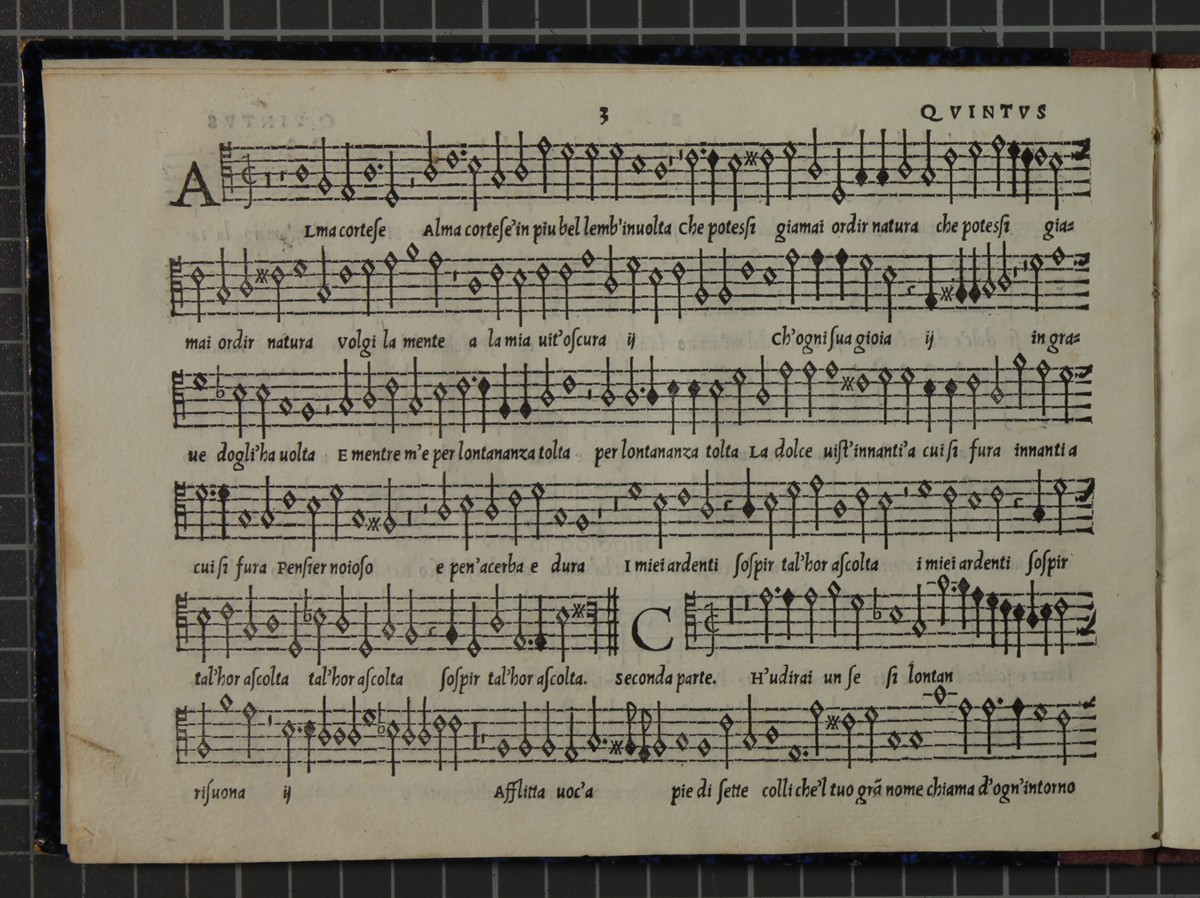 3 QVINTVS
A Lma cortese Alma cortese'in piu bel lemb'inuolta Che potessi giamai ordir natura che potessi gia=
mai ordir natura volgi la mente a la mia uit'oscura ij Ch'ogni sua gioia ij in gra=
ue dogli'ha uolta E mentre m'e per lontananza tolta per lontananza tolta La dolce uist'innanti'a cui si fura innanti a
cui si fura Pensier noioso e pen'acerba e dura I miei ardenti sospir tal'hor ascolta i miei ardenti sospir
tal'hor ascolta tal'hor ascolta sospir tal'hor ascolta. Seconda parte. C H'udirai un se si lontan
risuona ij Afflitta uoc'a pie di sette colli che'l tuo grã nome chiama d'ogn'intorno